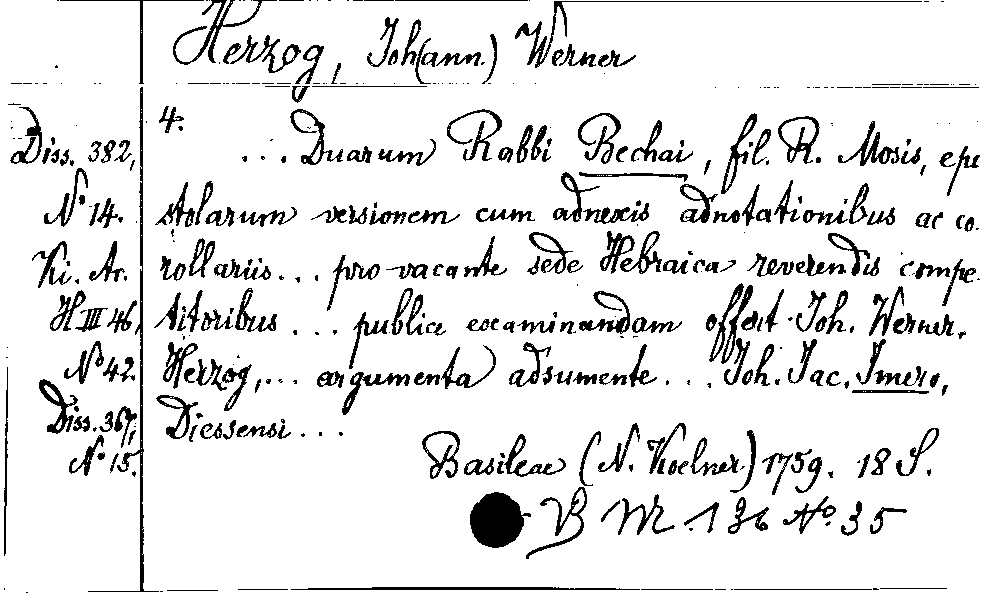 Herzog, Joh(ann.) Werner
4.
Diss. 382, ... Duarum Rabbi Bechai, fil. R. Mosis, epi
No 14. stolarum versionem cum adnexis adnotationibus ac co
Ki. Ar. rollariis... pro vacante sede Hebraica reverendis compe
H III 46, titoribus ... publice examinandam offert Joh. Werner.
No 42. Herzog,... argumenta adsumente... Joh. Jac. Imero,
Diss. 367, Diessensi...
No 15. Basileae (N. Koelner) 1759. 18 S.
B M. 136 No. 35